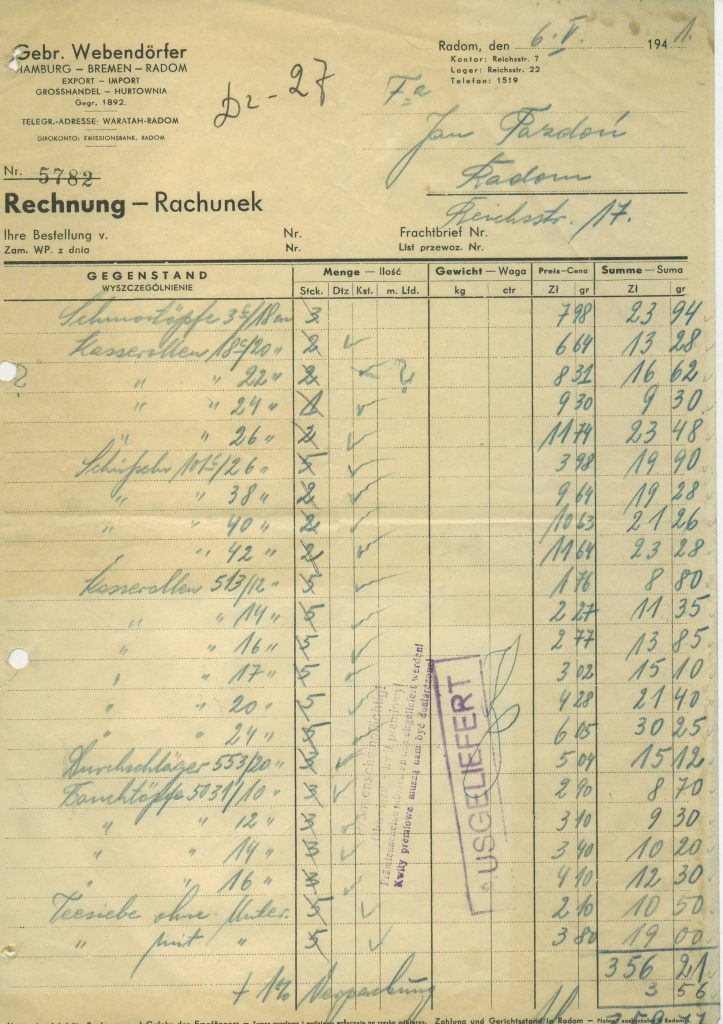 Gebr. Webendörfer
HAMBURG – BREMEN – RADOM
EXPORT – IMPORT
GROSSHANDEL – HURTOWNIA
Gegr. 1892.
TELEGR.-ADRESSE: WARATAH-RADOM
GIROKONTO: EMISSIONSBANK, RADOM
Dz - 27
Radom, den 6. V. 1941.
Kontor: Reichsstr. 7
Lager: Reichsstr. 22
Telefon: 1519
Fa
Jan Pazdoń
Radom
Reichsstr. 17.
Nr. 5782
Rechnung – Rachunek
Ihre Bestellung v. Nr. Frachtbrief Nr.
Zam. WP. z dnia Nr. List przewoz. Nr.
GEGENSTAND Menge — Ilość Gewicht — Waga Preis—Cena Summe — Suma
WYSZCZEGÓLNIENIE Stck. Dtz Kst. m. Lfd. kg ctr Zł gr Zł gr
Schmortöpfe 3c/18 cm 3 7 98 23 94
Kasserollen 18c/20 " 2 6 64 13 28
" " 22 " 2 ? 8 31 16 62
" " 24 " 1 9 30 9 30
" " 26 " 2 11 74 23 48
Schüsseln /26 " 5 3 98 19 90
" " 38 " 2 9 64 19 28
" " 40 " 2 10 63 21 26
" " 42 " 2 11 64 23 28
Kasserollen 513/12 " 5 1 76 8 80
" " 14 " 5 2 27 11 35
" 16 " 5 2 77 13 85
" 17 " 5 3 02 15 10
" 20 " 5 4 28 21 40
" 24 " 5 6 05 30 25
Durchschläger 553/20 " 3 5 04 15 12
Bauchtöpfe 5031/10 " 3 2 90 8 70
" " 12 " 3 3 10 9 30
" " 14 " 3 3 40 10 20
" " 16 " 3 4 10 12 30
Teesiebe ohne Unter. 5 2 10 10 50
" mit " 5 3 80 19 00
356 21
+ 1% Verpackung 3 56
Kwity premiowe muszą nam być dostarczone
AUSGELIEFERT
Zahlung und Gerichtsstand in Radom –